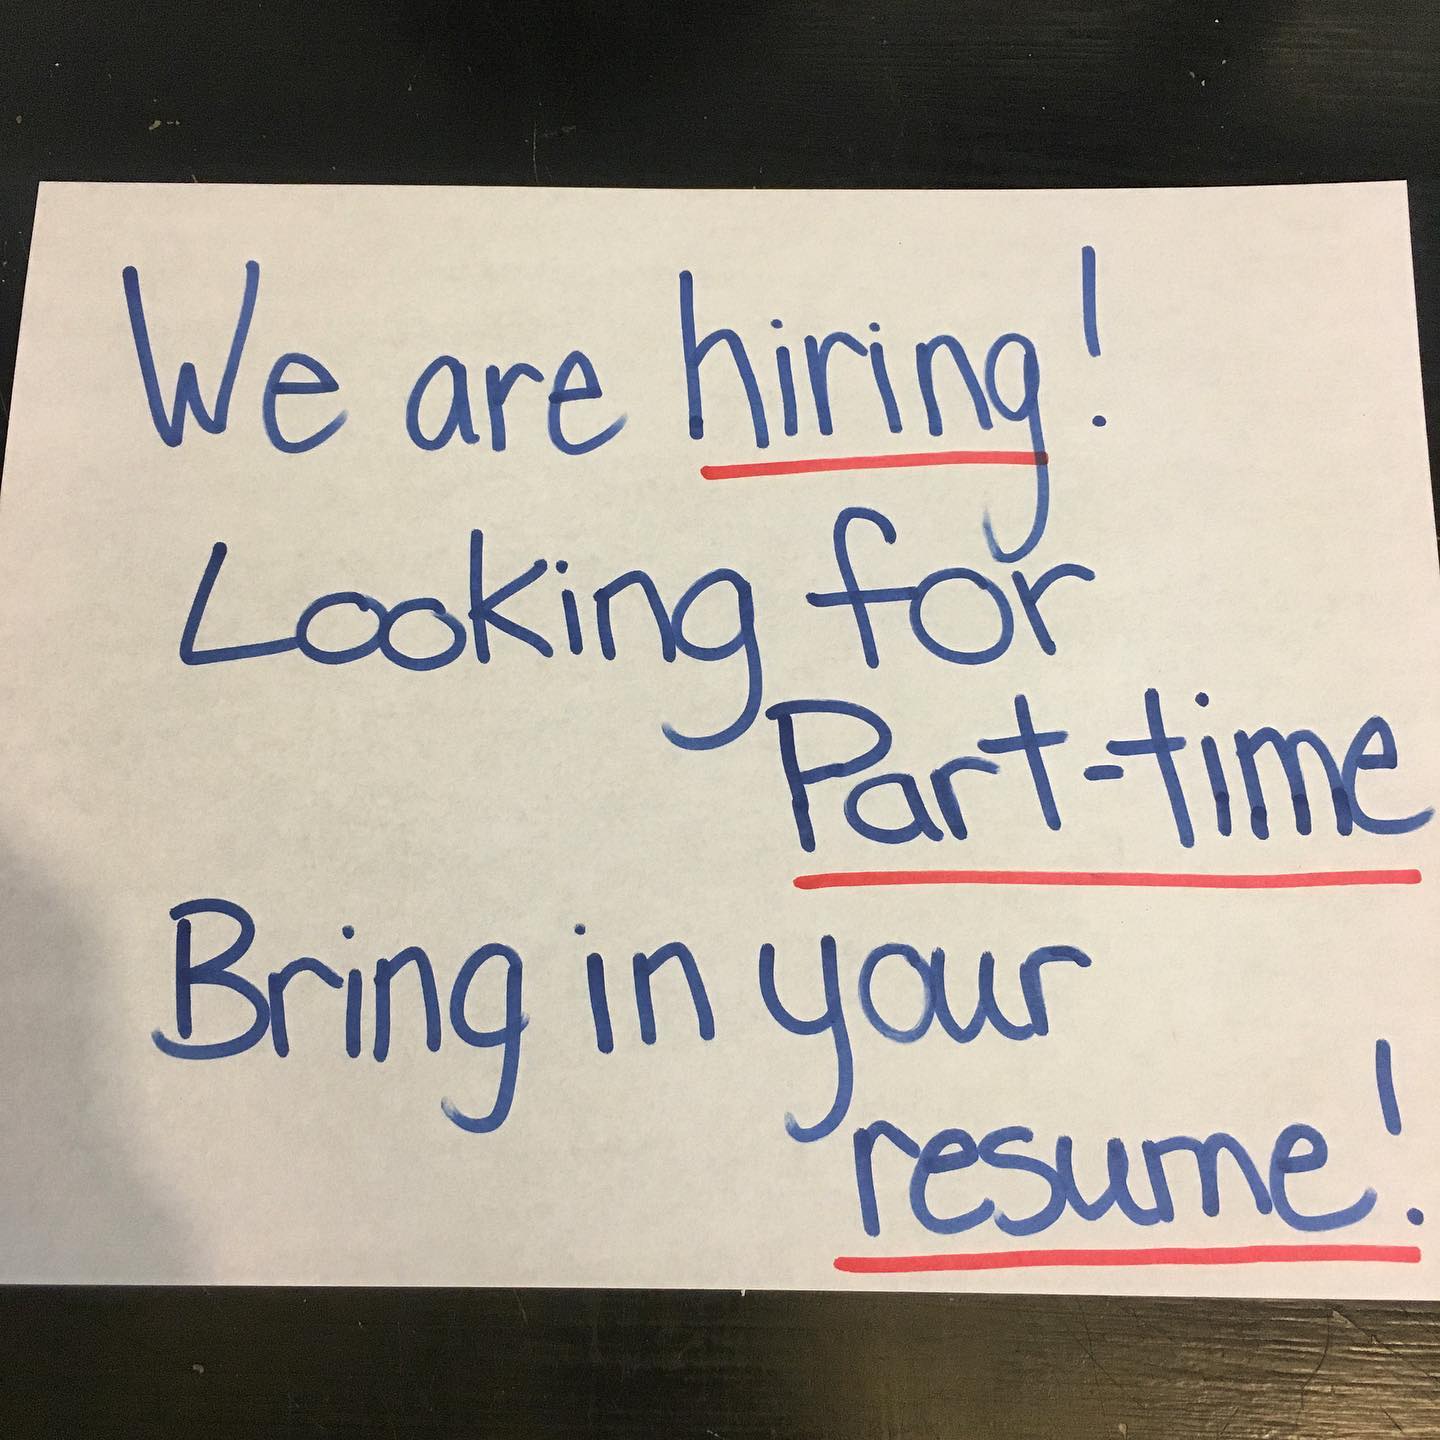 We are hiring!
Looking for
Part-time
Bring in your
resume!